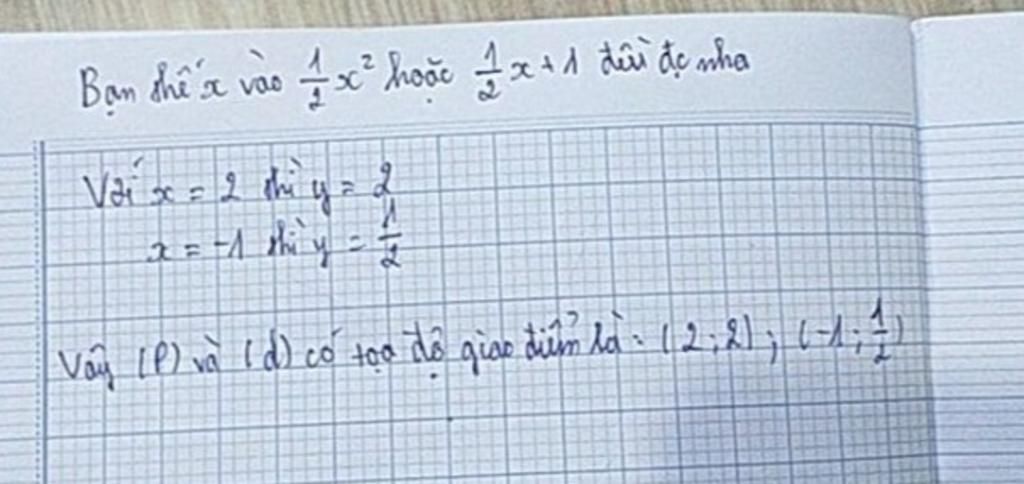 Bạn thế x vào 1/2 x² hoặc 1/2 x + 1 đều đc nha
Với x = 2 thì y = 2
x = -1 thì y = 1/2
Vậy (P) và (d) có tọa độ giao điểm là: (2;2); (-1; 1/2)